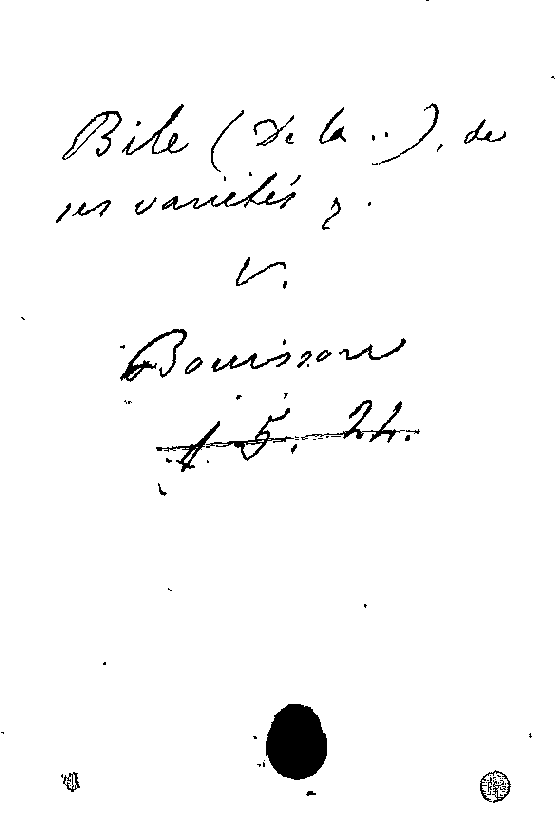 Bile (De la ..), de
ses variétés
V.
Bouisson
1. 5. 24.